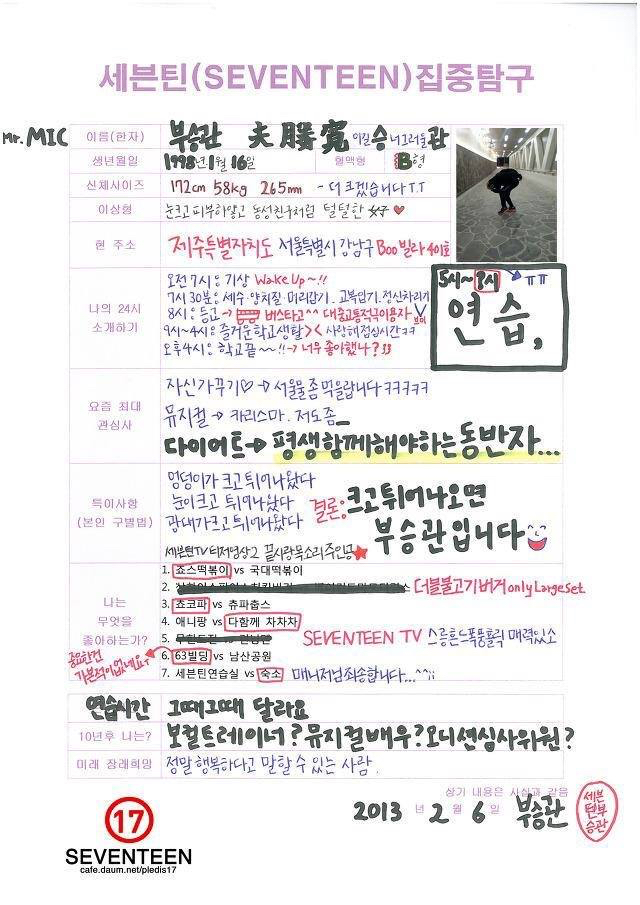 세븐틴(SEVENTEEN)집중탐구
Mr.MIC
이름(한자) 부승관 夫勝寬 이길 승 너그러울 관
생년월일 1998년 1월 16일 혈액형 B형
신체사이즈 172cm 58kg 265mm - 더 크겠습니다 T.T
이상형 눈크고 피부하얗고 동성친구처럼 털털한 女子♥
현 주소 제주특별자치도 서울특별시 강남구 Boo빌라 401호
나의 24시 소개하기
오전 7시 : 기상 Wake Up~!!
7시 30분 : 세수·양치질·머리감기·교복입기·정신차리기
8시 : 등교 → 버스타고^^ 대중교통적극이용자 V
9시~4시 : 즐거운 학교생활 >< 사랑해 점심시간 ㅋㅋ
오후 4시 : 학교 끝~~!! → 너무 좋아했나?
5시~8시 ㅠㅠ
연습,
요즘 최대 관심사
자신가꾸기♡ → 서울물 좀 먹을랍니다 ㅋㅋㅋㅋㅋ
뮤지컬 → 카리스마. 저도 좀
다이어트 → 평생함께해야하는 동반자...
특이사항
(본인 구별법)
멍덩이가 크고 튀어나왔다
눈이 크고 튀어나왔다
광대가 크고 튀어나왔다
결론: 크고 튀어나오면
부승관입니다
세븐틴TV 티저영상2 끝사랑 목소리 주인공★
나는
무엇을
좋아하는가?
1. 죠스떡볶이 vs 국대떡볶이
2. 더블불고기버거 only Large set
3. 쵸코파 vs 츄파춥스
4. 애니팡 vs 다함께 차차차
5. vs
SEVENTEEN TV 스릉흔드 폭풍홀릭 매력있소
6. 63빌딩 vs 남산공원
7. 세븐틴연습실 vs 숙소 매니저님 죄송합니다...^^;;
중요한건
가본적이없네요
연습시간 그때그때 달라요
10년후 나는? 보컬트레이너? 뮤지컬배우? 오디션심사위원?
미래 장래희망 정말 행복하다고 말할 수 있는 사람.
상기 내용은 사실과 같음
2013 년 2 월 6 일 부승관
세븐틴부승관
17
SEVENTEEN
cafe.daum.net/pledis17